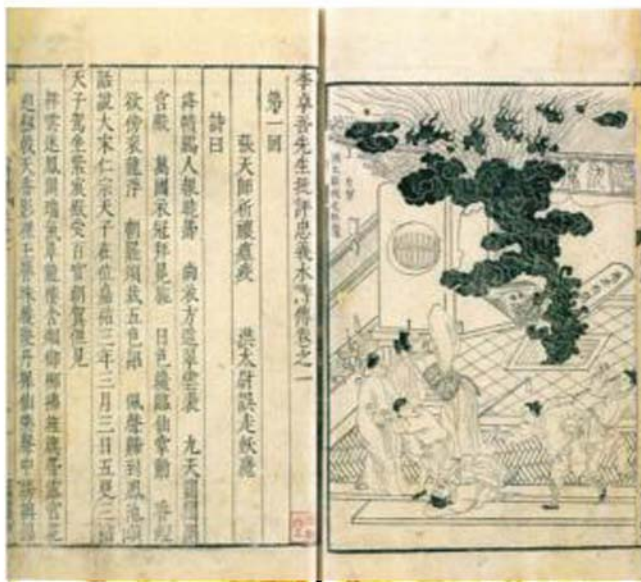 李卓吾先生批評忠義水滸傳卷之一
第一回
張天師祈禳瘟疫 洪太尉誤走妖魔
詩曰
絳幘雞人報曉籌 尚衣方進翠雲裘 九天閶闔開
宮殿 萬國衣冠拜冕旒 日色纔臨仙掌動 香烟
欲傍袞龍浮 朝罷須裁五色詔 佩聲歸到鳳池頭
話說大宋仁宗天子在位嘉祐三年三月三日五更三點
天子駕坐紫宸殿受百官朝賀但見
祥雲迷鳳閣瑞氣罩龍樓含烟御柳拂旌旗帶露宮花
迎劍戟天香影裡玉簪珠履聚丹墀仙樂聲中繡襖